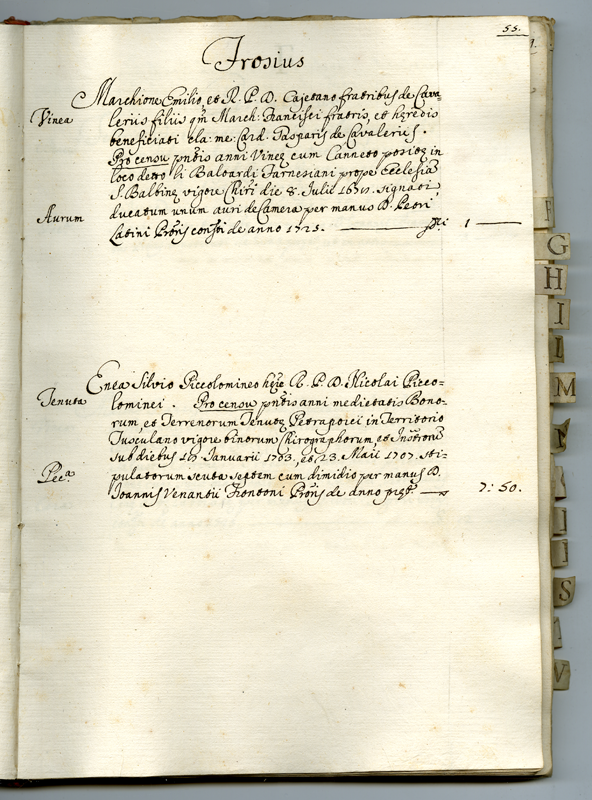 55.
Frosius
Marchione Emilio, et R. P. D. Cajetano fratribus de Cava-
Vinea
lerijs filijs qm̃ March: Francisci fratris, et hęredis
beneficiati cla: me: Card. Gasparis de Cavalerijs.
Pro censu pñtis anni Vineę cum Canneto positę in
loco detto li Baloardi Farnesiani prope Ecclesiã
S. Balbinę vigore Chiri die 8. Julii signati
Aurum
ducatum unum auri de Camera per manus D. Petri
Latini Proris de anno 1725. 1
Enea Silvio Piccolomineo R. P. D. Nicolai Picco-
Tenuta
lominei. Pro censu pñtis anni medietatis Bono-
rum, et Terrenorum Tenutę Petrapoicii in Territorio
Tusculano vigore binorum Chirographorum, et
sub diebus Januarii 1703, et 23. Maii 1707. sti-
Pec.a
pulatorum scuta septem cum dimidio per manus D.
Joannis Venantii Frontoni Proris de anno 7: 50.
F
G
H
I
I
M
I
S
V